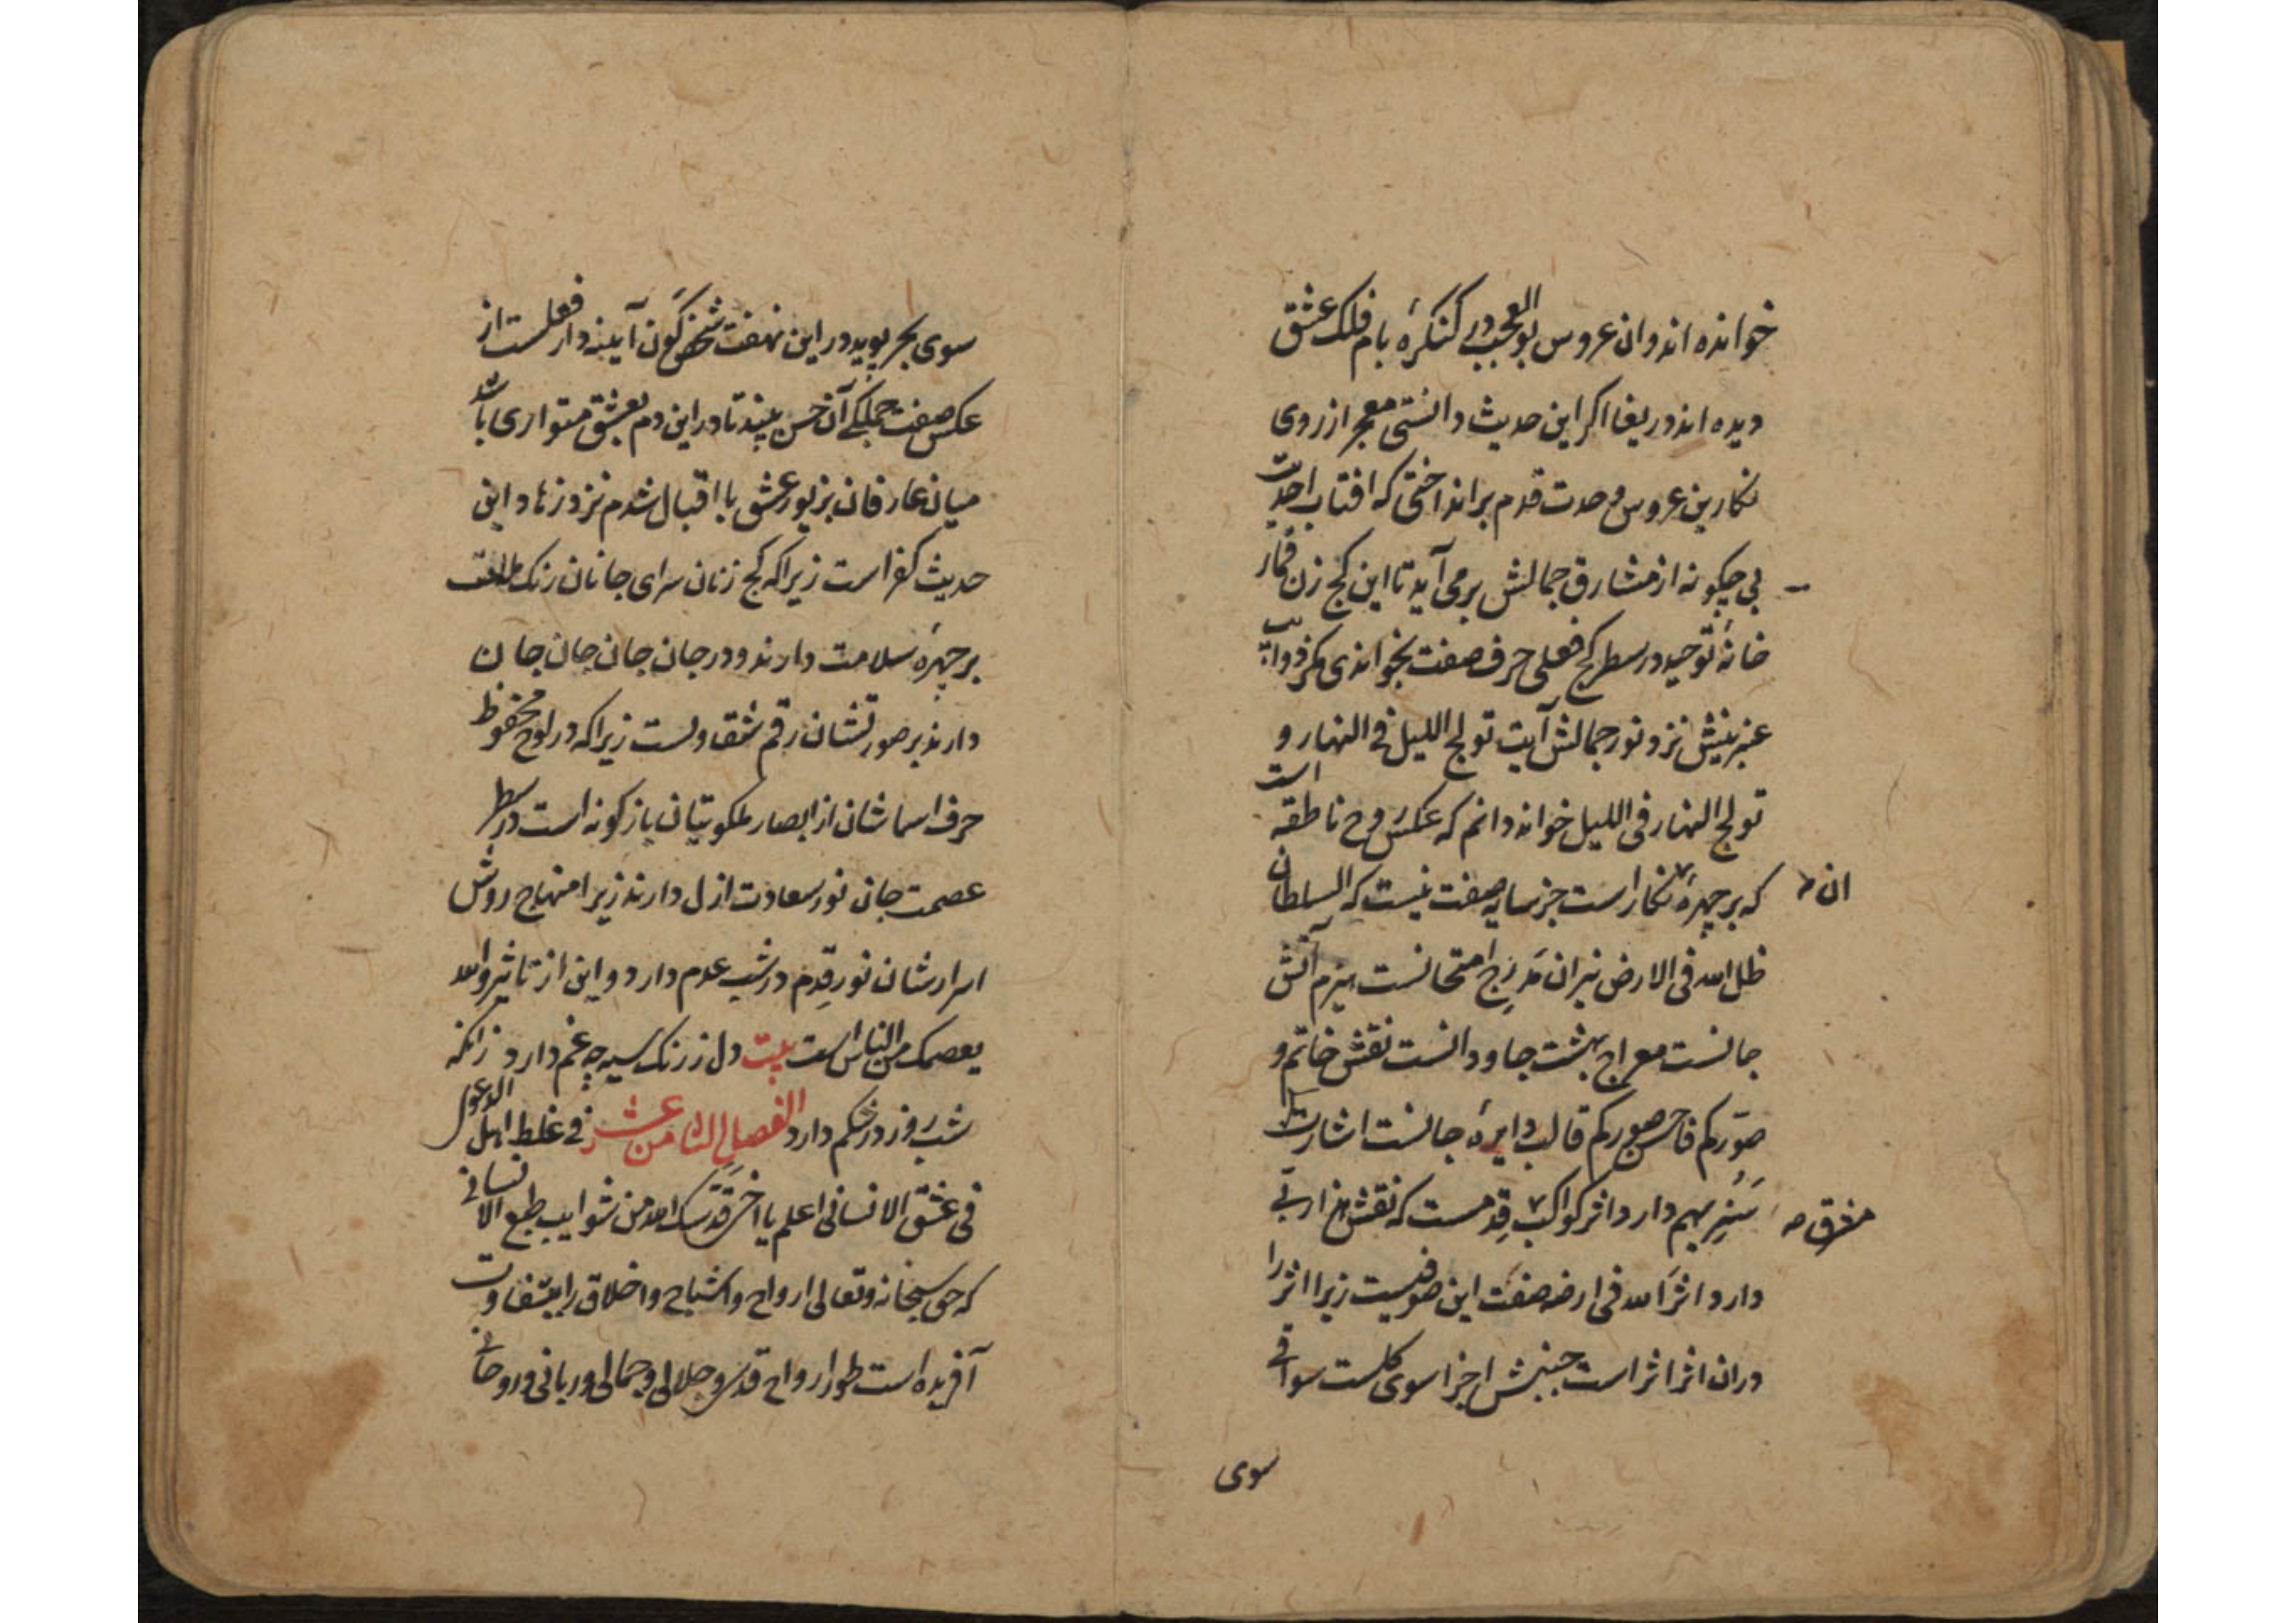 خوانده اند وان عروس بوالعجب در کنکرۀ بام فلک عشق
دیده اند دریغا اکر این حدیث دانستی معجر از روی
نکارین عروس وحدت قدم برانداختی که افتاب احدیت
بی چکونه از مشارق جمالش برمی آید تا این کج زن قمار
خانۀ توحید در سطر کج فعلی حرف صفت بخواندی مکر ذوایب
عنبرینش نزد نور جمالش آیت تولج اللیل فی النهار و
تولج النهار فی اللیل خواند دانم که عکس روح ناطقه است
که بر چهرۀ نکار است جز سایه صفت نیست که السلطان
ان
ظل الله فی الارض نیران مدرج امتحانست هیزم آتش
جانست معراج بهشت جاودانست نقش خاتم و
صوّرکم فاحسن صورکم قالب دایرۀ جانست اشارت
سنریهم دارد اثر کواکب قِدمست که نقش هزار
مشرق
دارد اثر الله فی ارضه صفت این صوفیست زیرا اثر را
دران اثر اثر است جنبش اجزا سوی کلست سواقی
سوی
سوی بحر پوید در این نهفت شخص کون آینه دار فعلست از
عکس صفت جملکی آن حسن بیند تا در این دم بعشق متواری باشد
میان عارفان بزیور عشق با اقبال شدم نزد زهاد این
حدیث کفر است زیرا که کج زنان سرای جانان رنک ملامت
بر چهرۀ سلامت دارند و در جان جان جان جان جان
دارند بر صورتشان رقم شقاوتست زیرا که در لوح محفوظ
حرف اسماشان از ابصار ملکوتیان بازکونه است در سطر
عصمت جانی نور سعادت ازل دارند زیرا منهاج روش
اسرارشان نور قِدم در شب عدم دارد و این از تاثیر والله
یعصمک من الناس است بیت دل ز رنک سیه چه غم دارد زانکه
شب روز در شکم دارد الفصل الثامن عشر فی غلط اهل الدعوی
فی عشق الانسانی اعلم یا اخی قدّسک الله من شوایب طبع الانسانی
که حق سبحانه وتعالی ارواح و اشباح و اخلاق را بتفاوت
آفریده است طور ارواح قدسی و جلالی و جمالی و ربانی و روحانی